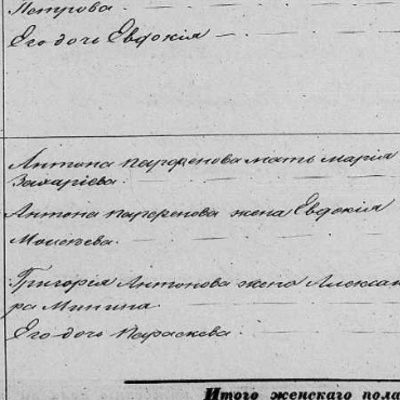 Петрова.
Его дочь Евдокія
Антона Парфенова мать Марія
Захаріева.
Антона Парфенова жена Евдокія
Моисеева.
Григорія Антонова жена Алексан
ра Минина.
Его дочь Параскева.
Итого женскаго пола